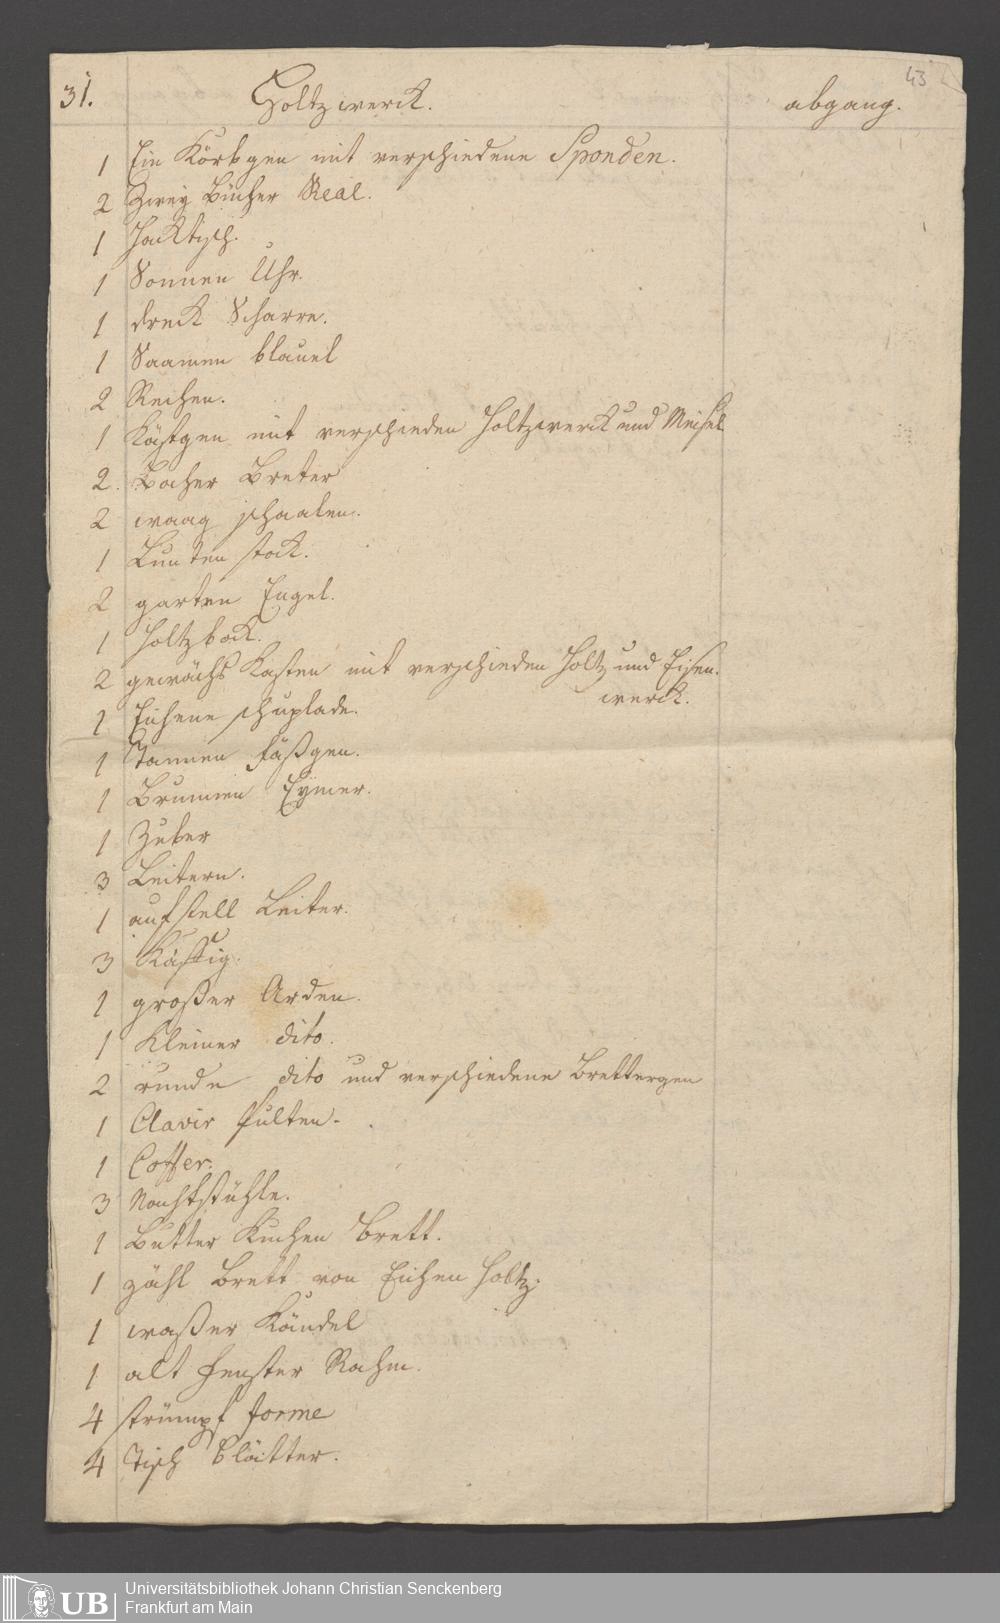 43
31. Holtzwerck. abgang.
1 Ein Körbgen mit verschiedene Sponden.
2 Zwey Bücher Real.
1 Hacktisch.
1 Sonnen Uhr.
1 dreck Scharre.
1 Saamen blauel
2 Rechen.
1 Kästgen mit verschieden Holtzwerck und Meisel
2. Bacher Breter
2 waag schaalen.
1 Lunten stock.
2 garten Engel.
1 Holtzbock.
2 gewächs Kasten mit verschieden Holtz und Eisen.
werck.
1 Eichene schuplade.
1 Tannen Fäßgen.
1 Brunnen Eymer.
1 Zuber
3 Leitern.
1 aufstell Leiter.
3 Käffig.
1 großer Arden.
1 Kleiner dito.
2 runde dito und verschiedene Brettergen
1 Clavir Pulten.
1 Coffer.
3 Nachtstühle.
1 Butter Kuchen brett.
1 zähl Brett von Eichen Holtz.
1 waßer Kändel
1 alt Fenster Rahm.
4 strümpf forme
4 Tisch blätter.
Universitätsbibliothek Johann Christian Senckenberg
Frankfurt am Main
UB